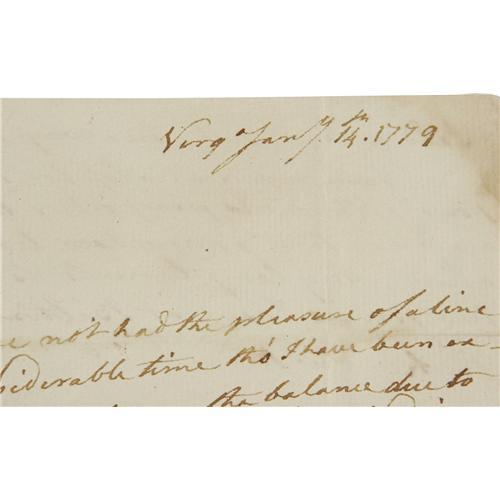 Virgᵃ Janʸ. 14ᵗʰ. 1779
not had the pleasure of a line
siderable time tho' I have been ex-
the balance due to